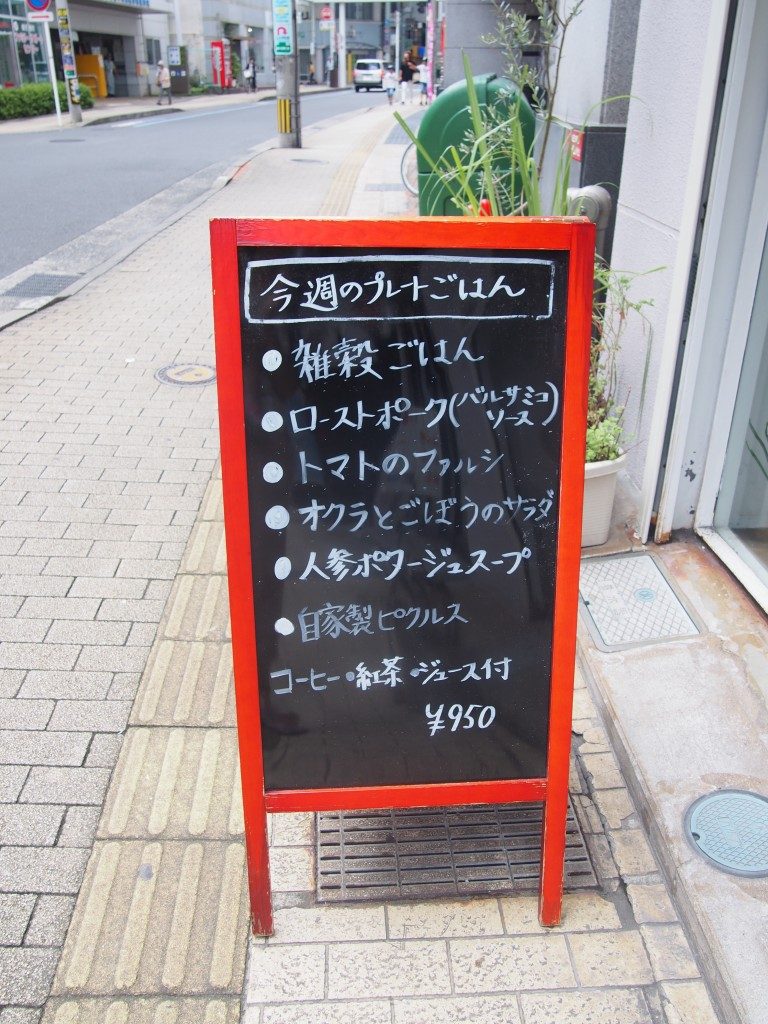 今週のプレートごはん
●雑穀ごはん
●ローストポーク(バルサミコソース)
●トマトのファルシ
●オクラとごぼうのサラダ
●人参ポタージュスープ
●自家製ピクルス
コーヒー・紅茶・ジュース付
¥950